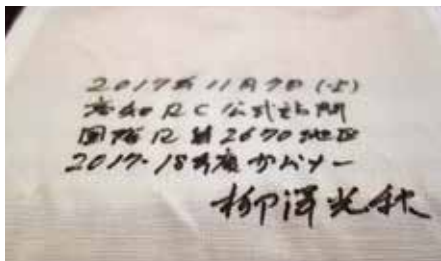 2017年11月7日(火)
高知RC公式訪問
国際R第2670地区
2017-18年度ガバナー
柳澤光秋